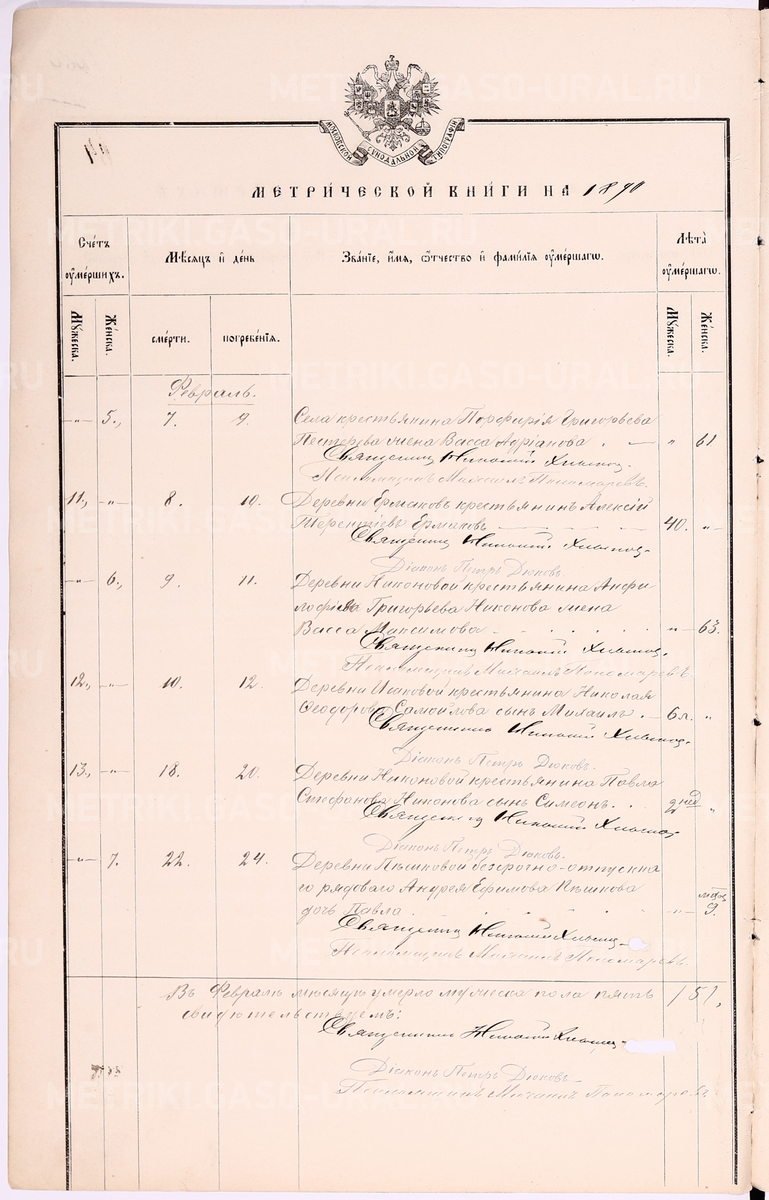 МОСКОВСКОЙ СУНОДАЛЬНОЙ ТИПОГРАФІИ
МЕТРИ́ЧЕСКОЙ КНИ́ГИ НА 1890
Сче́тъ ᲂу҆ме́ршихъ.
Мѣ́сѧцъ и҆ де́нь
Зва́нїе, и҆́мѧ, ѻ҆́тчество и҆ фами́лїѧ ᲂу҆ме́ршагѡ.
Лѣ́та ᲂу҆ме́ршагѡ.
Мꙋ́жеска.
Же́нска.
сме́рти.
погребе́нїѧ.
Мꙋ́жеска.
Же́нска.
Февраль.
-"- 5., 7. 9. Села крестьянина Порфирія Григорьева
Пестерева жена Васса Адріанова . — " 61
Священникъ Николай
Псаломщикъ Михаилъ Пономаревъ.
11., -"- 8. 10. Деревни Ермаковъ крестьянинъ Алексій
Терентіевъ Ермаковъ 40. -"-
Священникъ Николай
Діаконъ Петръ Дюковъ.
-"- 6., 9. 11. Деревни Никоновой крестьянина Анфи
лофіева Григорьева Никонова жена
Васса Максимова -"- 63.
Священникъ Николай
Псаломщикъ Михаилъ Пономаревъ
12., -"- 10. 12. Деревни крестьянина Николая
Ѳеодорова Самойлова сынъ Михаилъ. — 6 л. "
Священникъ Николай
Діаконъ Петръ Дюковъ.
13., -"- 18. 20. Деревни Никоновой крестьянина Павла
Стефанова Никонова сынъ Симеонъ. . "
Священникъ Николай
Діаконъ Петръ Дюковъ.
-"- 7. 22. 24. Деревни Пѣшковой безсрочно-отпускна
го рядоваго Андрея Ефимова Пѣшкова
дочь Павла -"- 9.
Священникъ Николай
Псаломщикъ Михаилъ Пономаревъ.
Въ Февралѣ мѣсяцѣ умерло мужеска пола пять /5/,
свидѣтельствуемъ:
Священникъ Николай
Діаконъ Петръ Дюковъ
Псаломщикъ Михаилъ Пономаревъ
METRIKI.GASO-URAL.RU